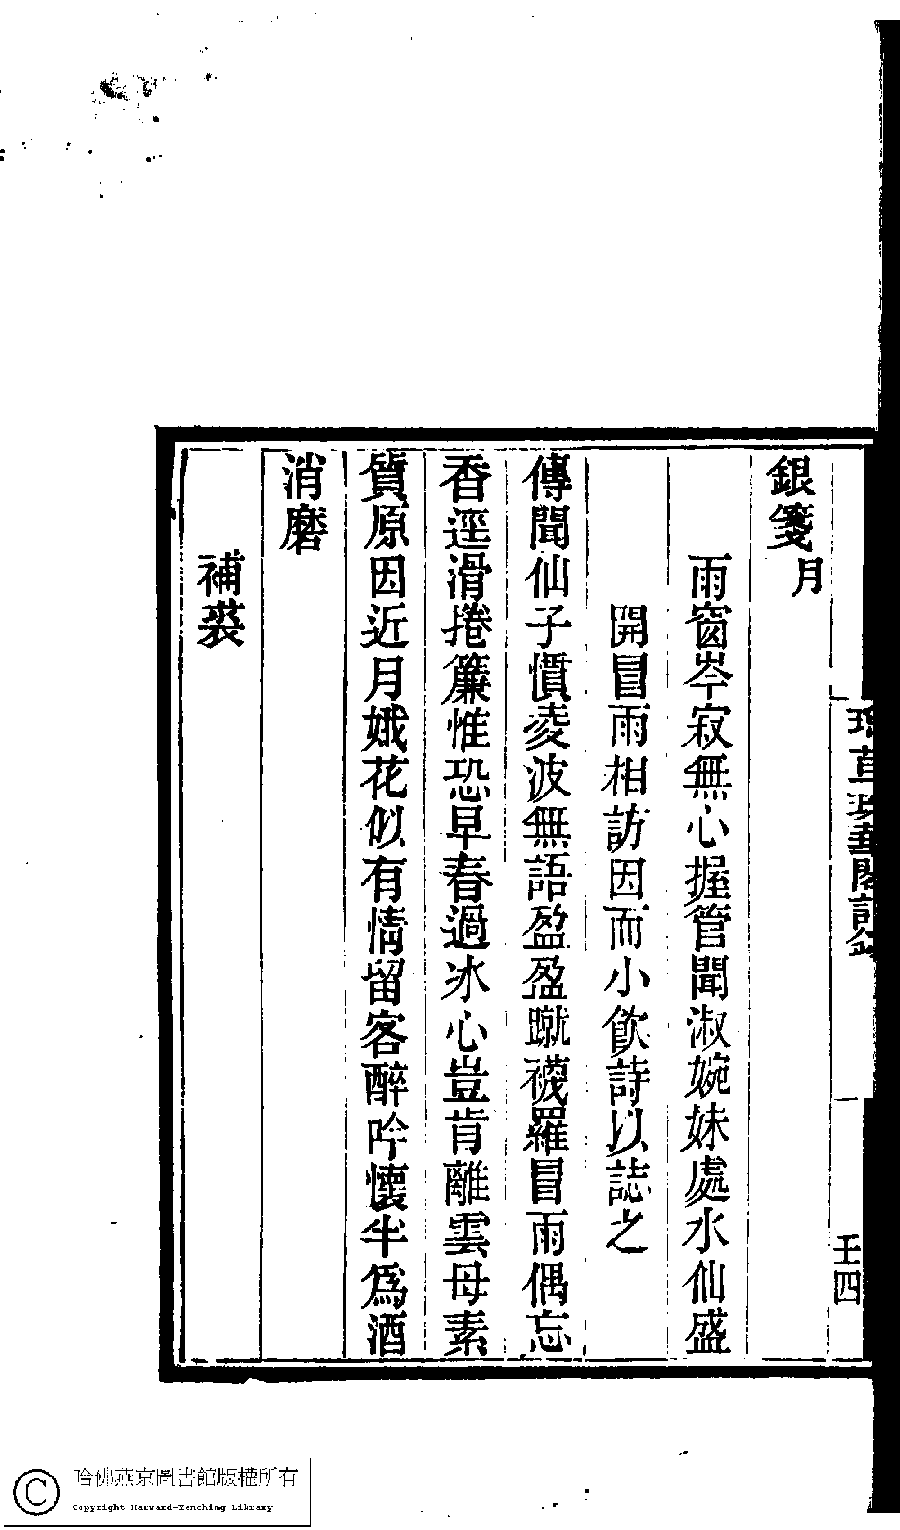 銀箋月
雨窗岑寂無心握管聞淑婉妹處水仙盛
開冒雨相訪因而小飲詩以誌之
傳聞仙子慣凌波無語盈盈蹴襪羅冒雨偶忘
香逕滑捲簾惟恐早春過冰心豈肯離雲母素
質原因近月娥花似有情留客醉吟懷半為酒
消磨
補裘
一
壬四
哈佛燕京圖書館版權所有
Copyright Harvard-Yenching Library